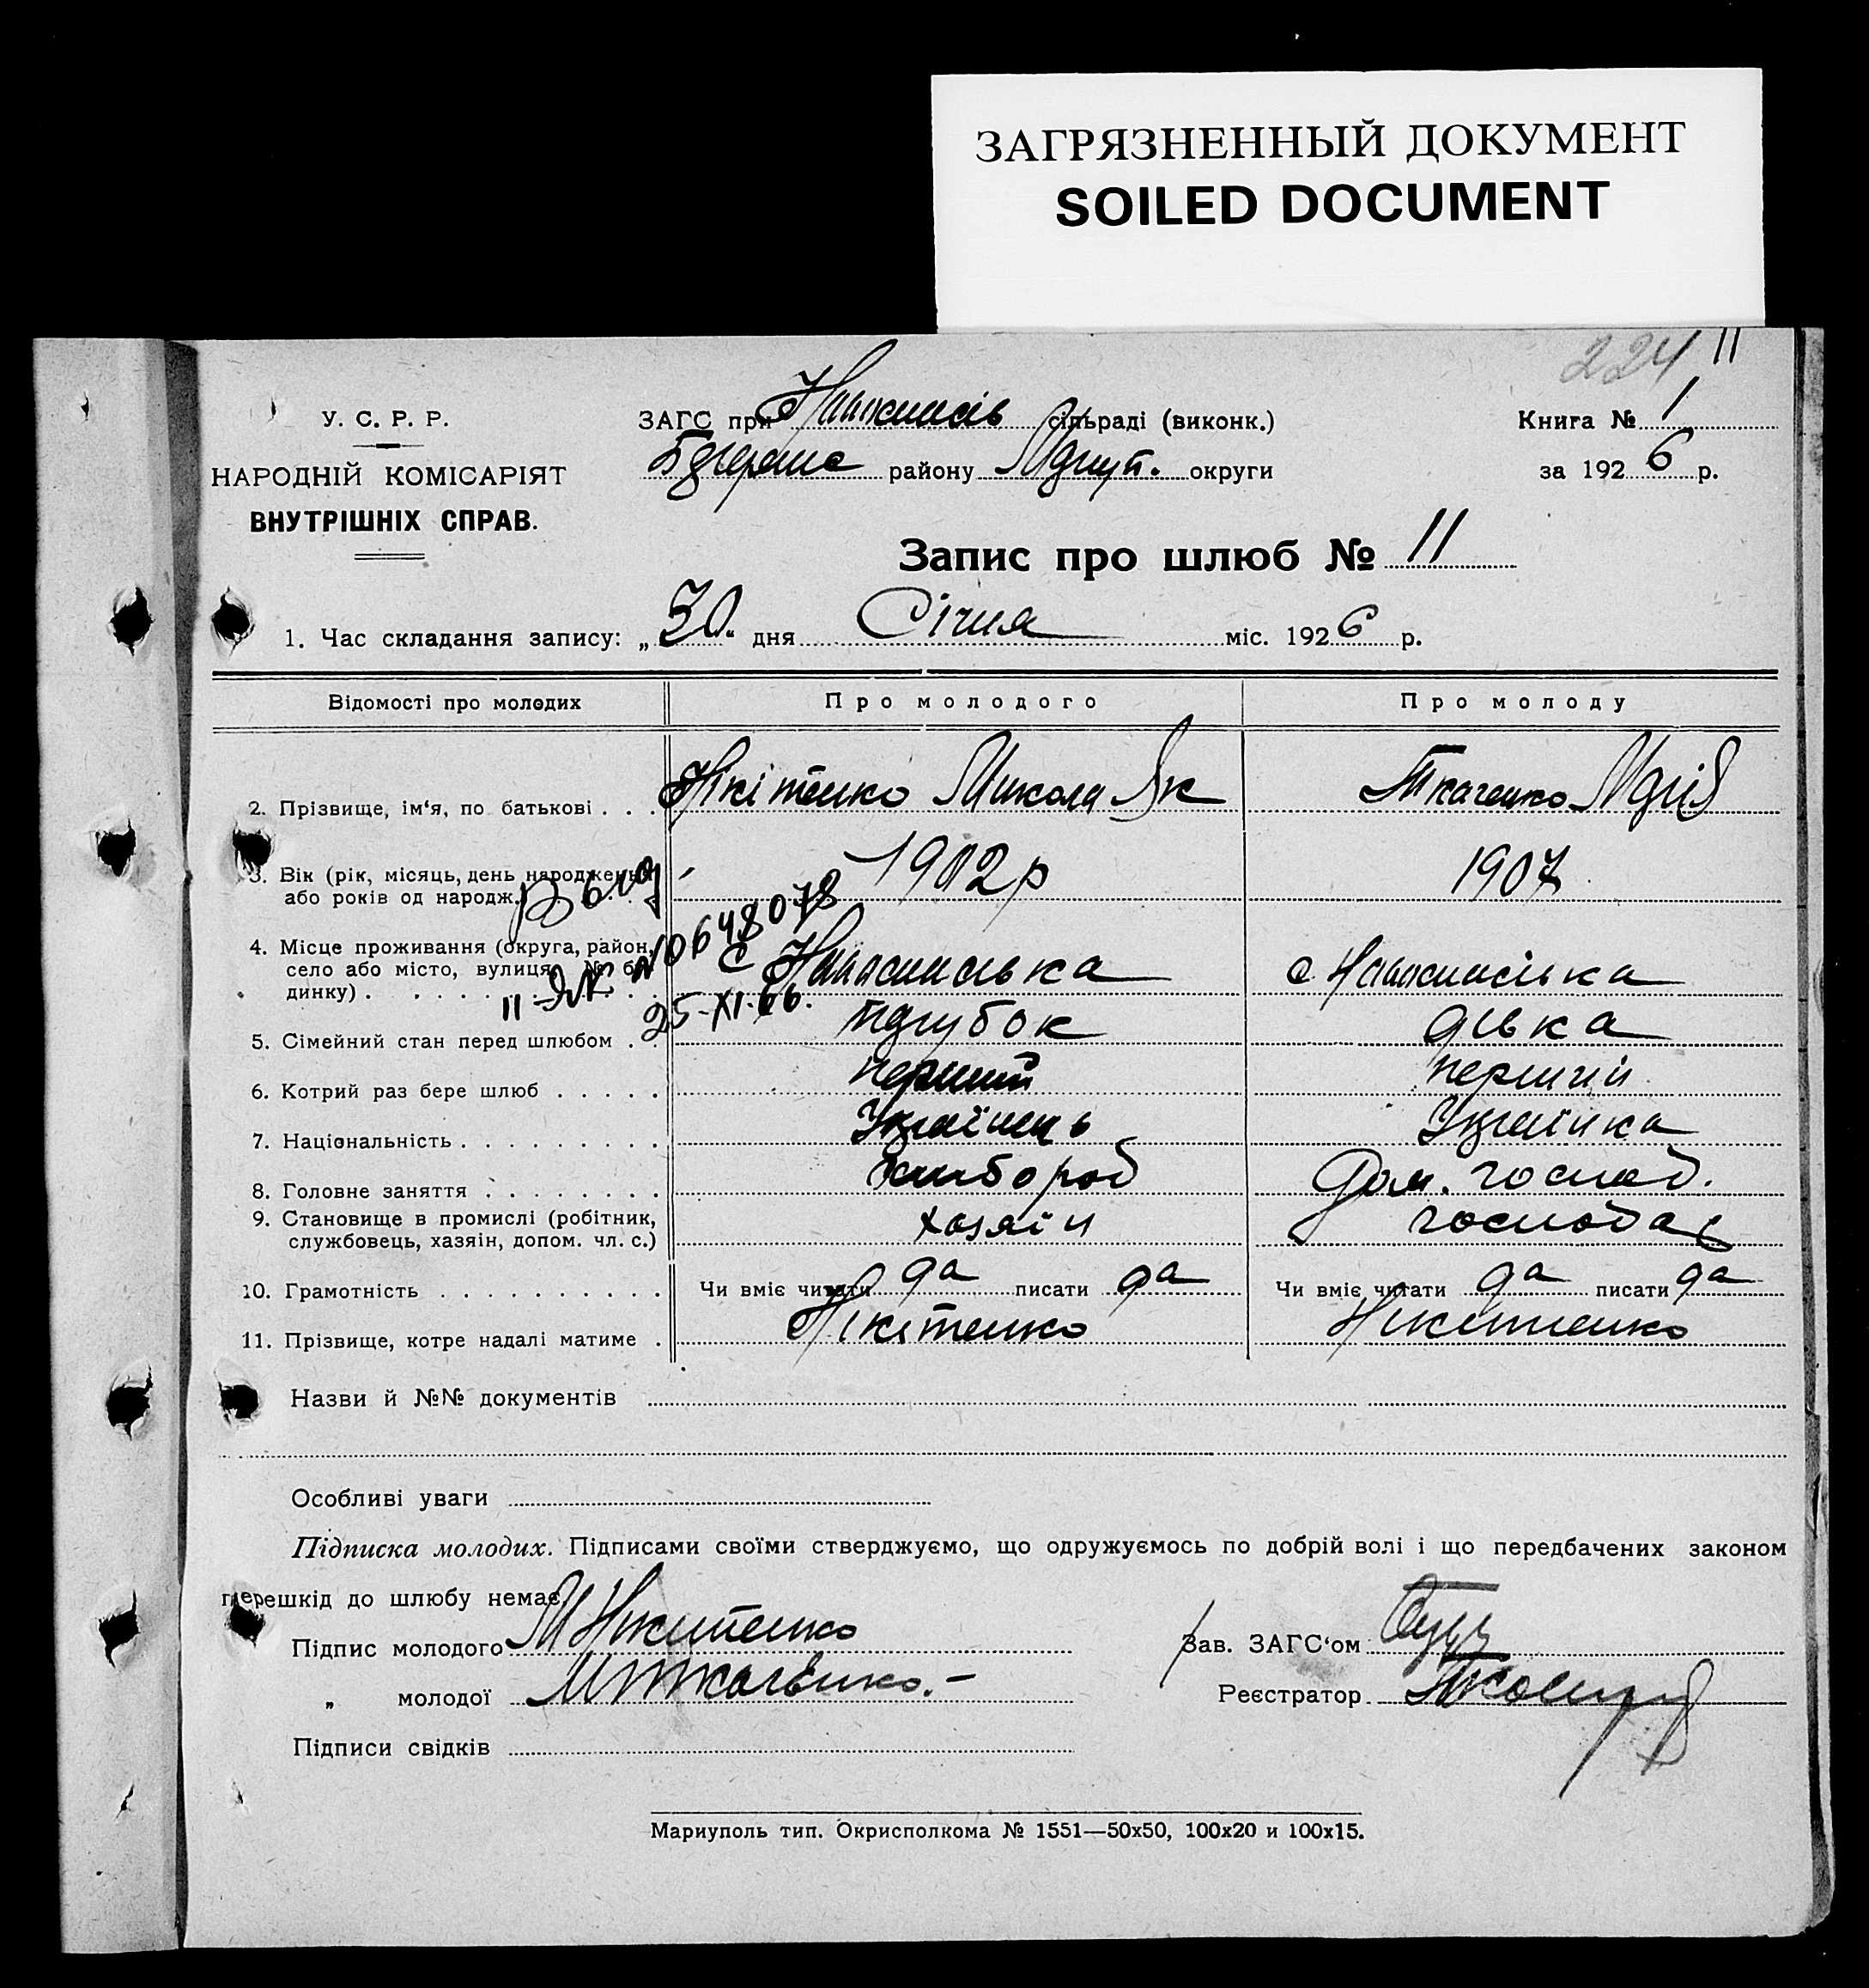 ЗАГРЯЗНЕННЫЙ ДОКУМЕНТ
SOILED DOCUMENT
224 11
У. С. Р. Р.
НАРОДНІЙ КОМІСАРІЯТ
ВНУТРІШНІХ СПРАВ.
ЗАГС при сільраді (виконк.)
району округи
Книга № 1
за 1926 р.
Запис про шлюб № 11
1. Час складання запису: „ 30. дня Січня міс. 1926 р.
Відомості про молодих Про молодого Про молоду
2. Прізвище, ім‘я, по батькові . . . Нікітенко Микола Як Ткаченко Марія
3. Вік (рік, місяць, день народження 1902 р 1907
або років од народж.)
4. Місце проживання (округа, район,
село або місто, вулиця, № бу-
динку) . . . . . . . с с
№ 0648078
25-XI-66.
5. Сімейний стан перед шлюбом . . парубок дівка
6. Котрий раз бере шлюб . . . . . перший перший
7. Національність . . . . . . . . . Українець Українка
8. Головне заняття . . . . . . . . хлібороб Дом. господ.
9. Становище в промислі (робітник, хазяїн
службовець, хазяін, допом. чл. с.)
10. Грамотність . . . . . . . . . . Чи вміє читати да писати да Чи вміє читати да писати да
11. Прізвище, котре надалі матиме . Нікітенко Нікітенко
Назви й №№ документів
Особливі уваги
Підписка молодих. Підписами своїми стверджуємо, що одружуємось по добрій волі і що передбачених законом
перешкід до шлюбу немає.
Підпис молодого М Никитенко Зав. ЗАГС‘ом
„ молодої М Ткаченко.- Реєстратор
Підписи свідків
Мариуполь тип. Окрисполкома № 1551—50х50, 100х20 и 100х15.